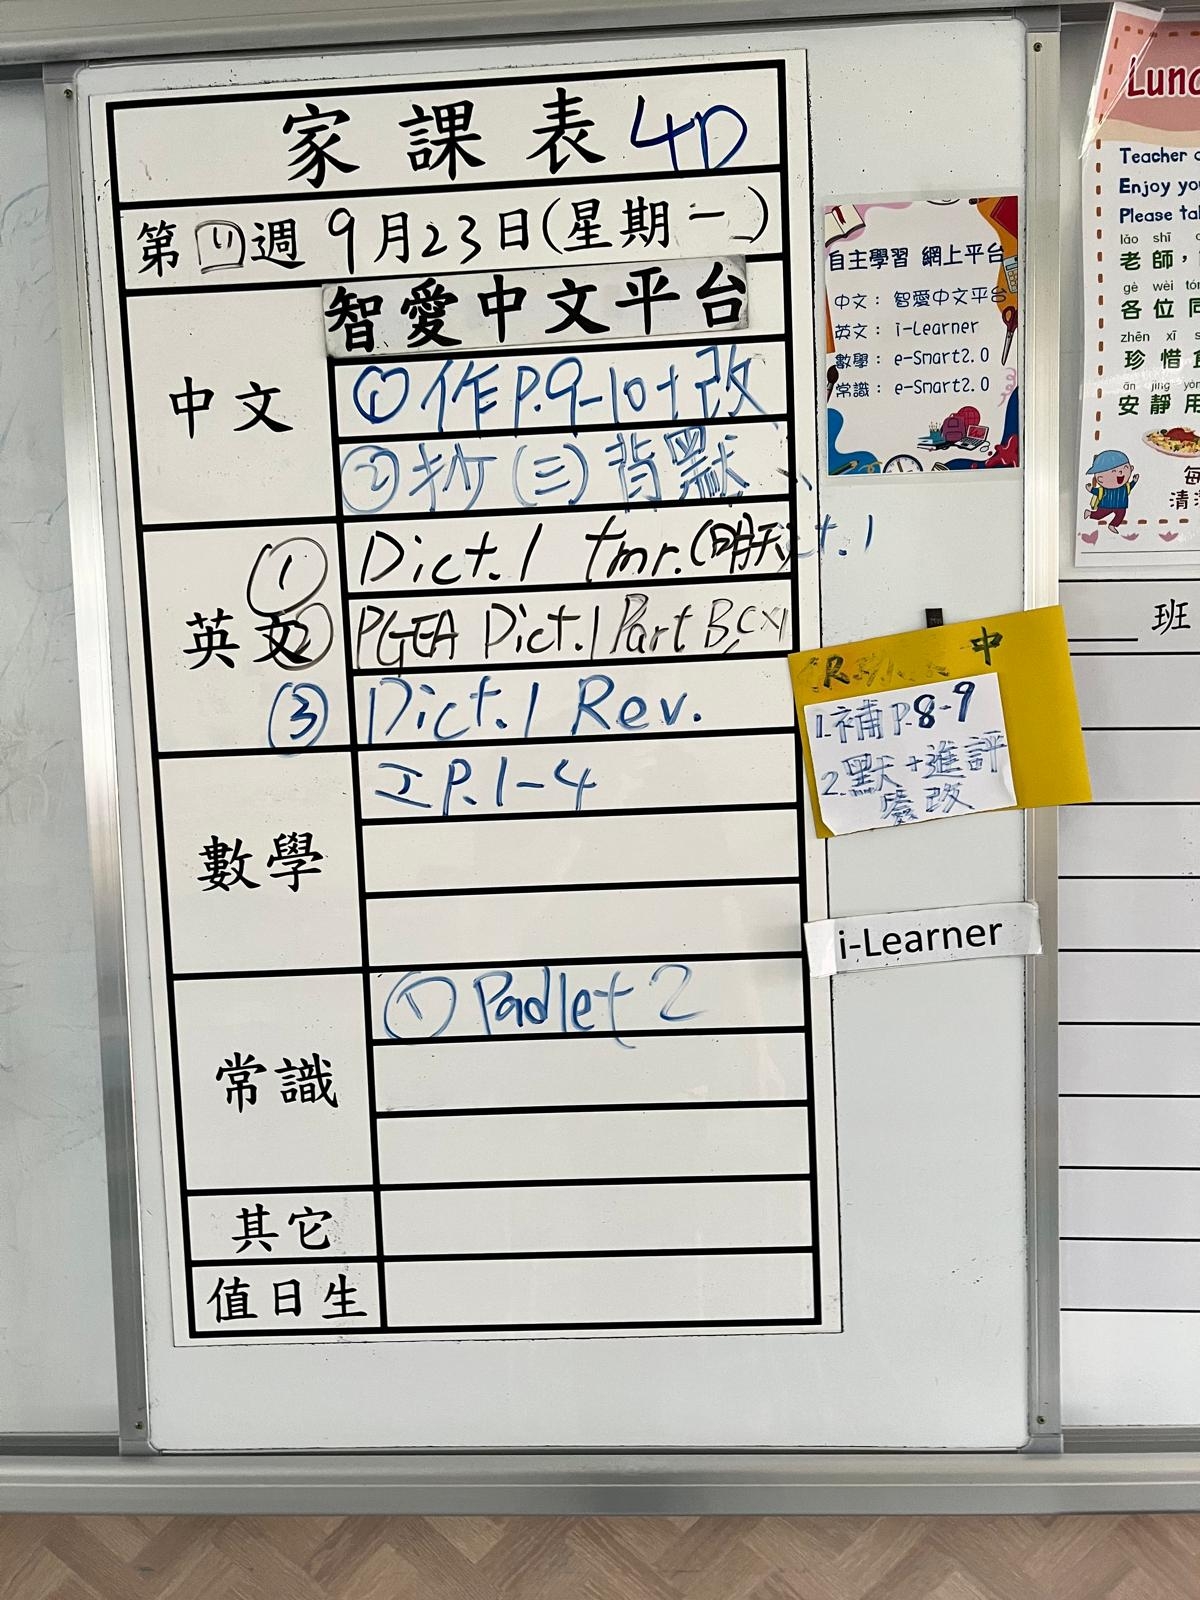 家課表 4D
第 四 週 9月23日(星期一)
中文
智愛中文平台
① 作P.9-10+改
② 抄(三)背默
英文
① Dict.1 tmr.(明天)
② PGEA Dict.1 Part B,C×1
③ Dict.1 Rev.
數學
工P.1-4
常識
① Padlet 2
其它
值日生
自主學習 網上平台
中文： 智愛中文平台
英文： i-Learner
數學： e-Smart2.0
常識： e-Smart2.0
t.1
中
1.補P.8-9
2.默+進評
改
i-Learner
Lunc
Teacher
Enjoy you
Please tal
lǎo shī
老師，
gè wèi
各位同
zhēn xī
珍惜
ān jìng yòn
安靜用
每
清
班